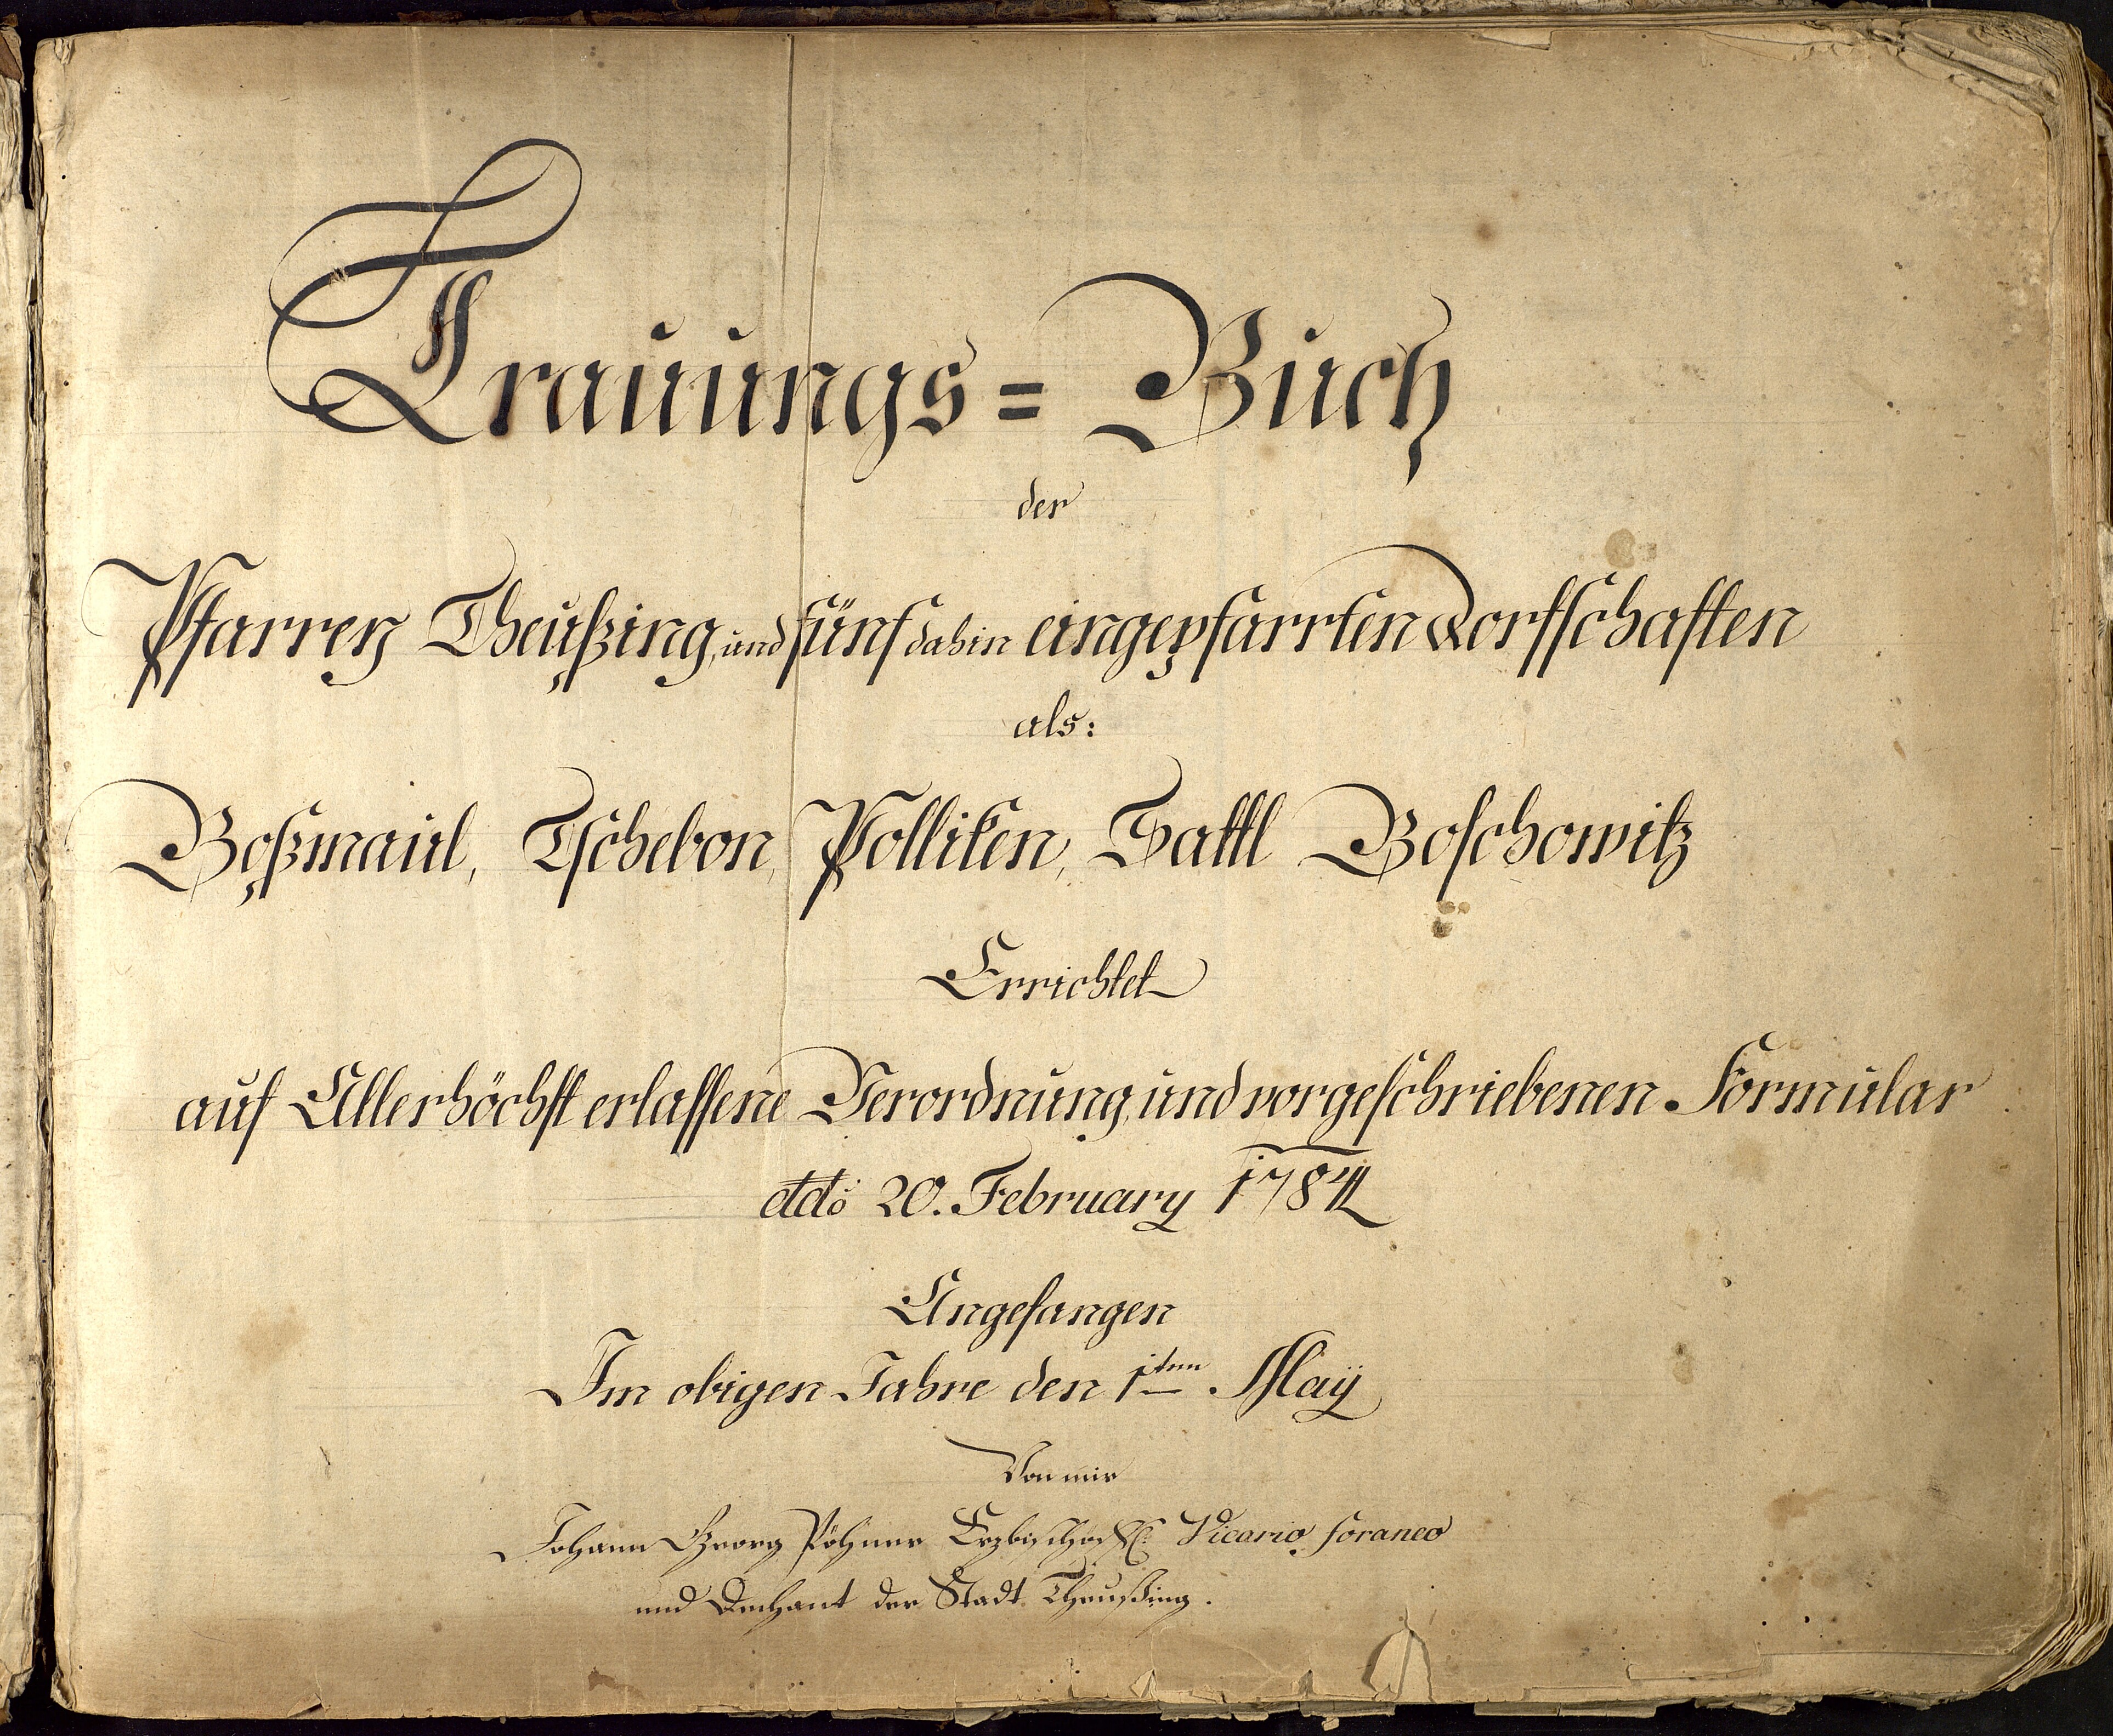 Trauungs= Buch
der
Pfarrey Theußing, und fünf dahin eingepfarrten Dorfschaften
als:
Boßmaul, Tschebon, Polliken, Sattl Boschowitz
Errichtet
auf Allerhöchst erlassene Verordnung, und vorgeschriebenen Formular
ddo 20. February 1784
Angefangen
Im obigen Jahre den 1ten May
Von mir
Johann Georg Pöhner Erzbischöfl: Vicario foraneo
und Dechant der Stadt Theußing.